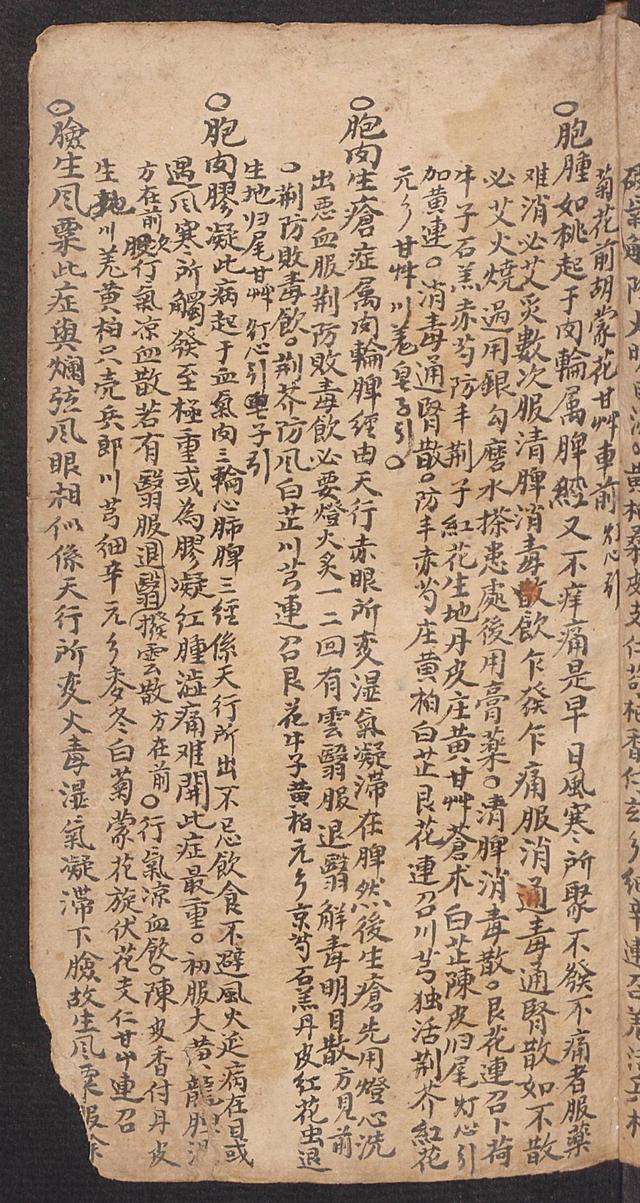 解陰大明目湯。黄柏桑皮支仁苦桔香付玄乡细辛連召羌活
菊花前胡蒙花甘艸車前灯心引
○胞腫如桃起于肉輪属脾經又不痒痛是早日風寒所聚不發不痛者服藥
难消必艾炙數次服清脾消毒飲乍發乍痛服消通毒通腎散如不散
必艾火燒過用銀勾磨水搽患處後用膏藥。清脾消毒散。艮花連召卜荷
牛子石羔赤芍防丰荆子紅花生地丹皮庄黄甘艸蒼术白芷陳皮归尾灯心引
加黄連。消毒通腎散。防丰赤芍庄黄柏白芷艮花連召川芎独活荆芥紅花
元乡甘艸川羌皂子引。
○胞肉生瘡症属肉輪脾經由天行赤眼所变湿氣凝滞在脾然後生瘡先用燈心洗
出惡血服荆防敗毒飲必要燈火炙一二回有雲翳服退翳解毒明目散方見前
。荆防敗毒飲。荆芥防风白芷川芎連召艮花牛子黄柏元乡京芍石羔丹皮紅花虫退
生地归尾甘艸灯心引皂子引
○胞肉膠凝此病起于血氣肉三輪心肺脾三經係天行所出不忌飲食不避風火延病在目或
遇风寒所觸發至極重或為膠凝紅腫澁痛难開此症最重。初服大黄龍胆湯
方在前次服行氣凉血散若有翳服退翳撥雲散方在前。行氣凉血飲。陳皮香付丹皮
生地川羌黄柏只壳兵郎川芎细辛元乡麥冬白菊蒙花旋伏花支仁甘艸連召
○臉生风粟此症與爛弦风眼相似係天行所变火毒湿氣凝滞下臉故生风粟服